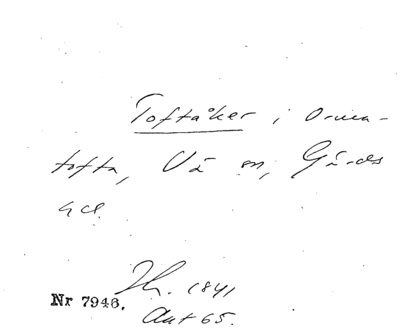 Toftåker i Ormen-
tofta, Vä sn, Gärds
hd.
Nr 7946.
1841
Akt 65.